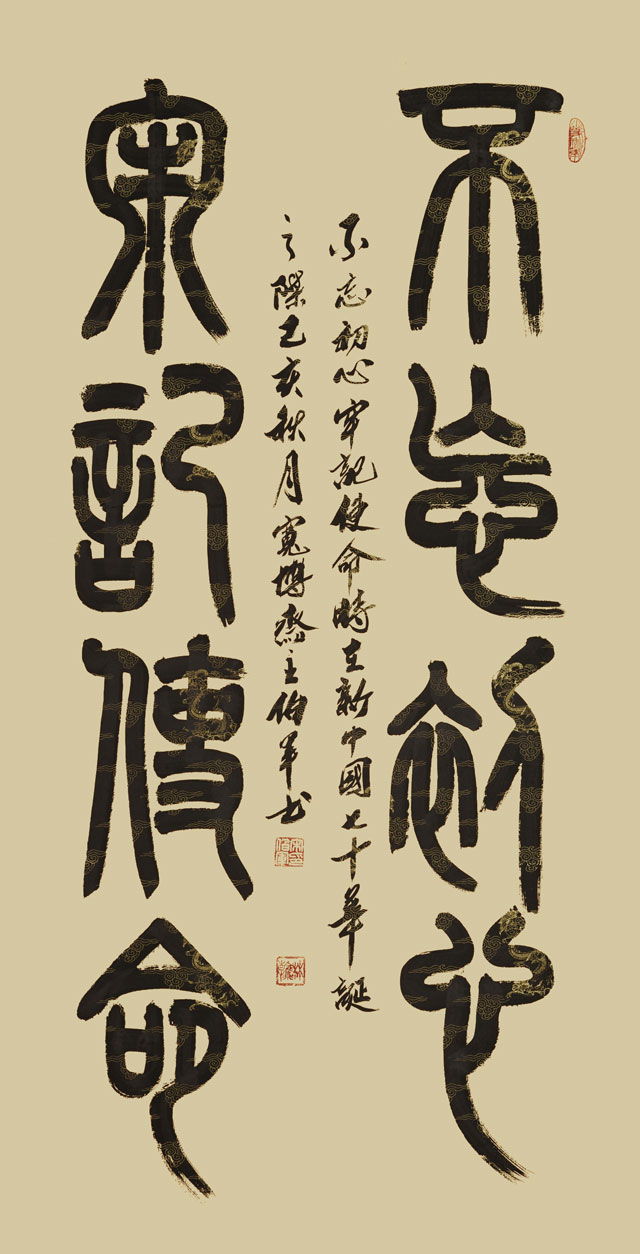 不忘初心
牢記使命
不忘初心牢記使命時在新中國七十華誕
之際己亥秋月寬博齋主伯軍书